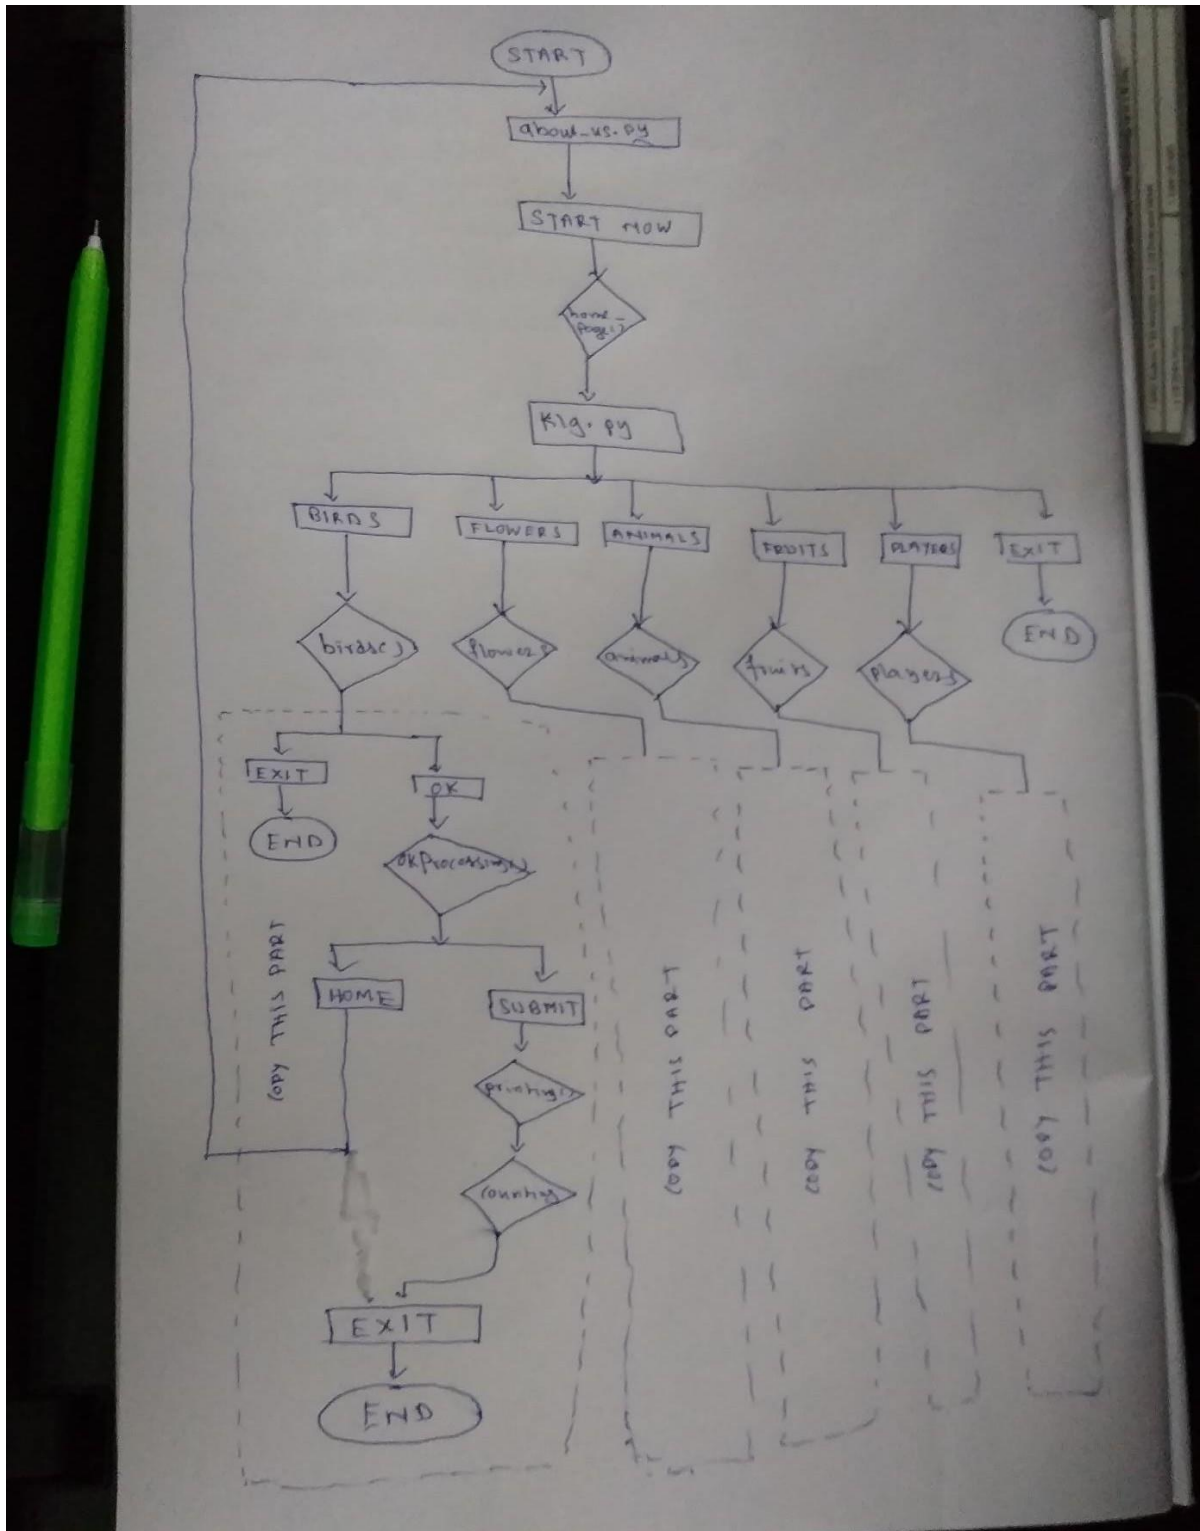 START
about_us.py
START NOW
home_
page()
Klg.py
BIRDS
FLOWERS
ANIMALS
FRUITS
PLAYERS
EXIT
birds()
flowers
animals
fruits
players
END
EXIT
OK
END
OKProcessing()
COPY THIS PART
HOME
SUBMIT
printing()
counting
COPY THIS PART
COPY THIS PART
COPY THIS PART
COPY THIS PART
EXIT
END